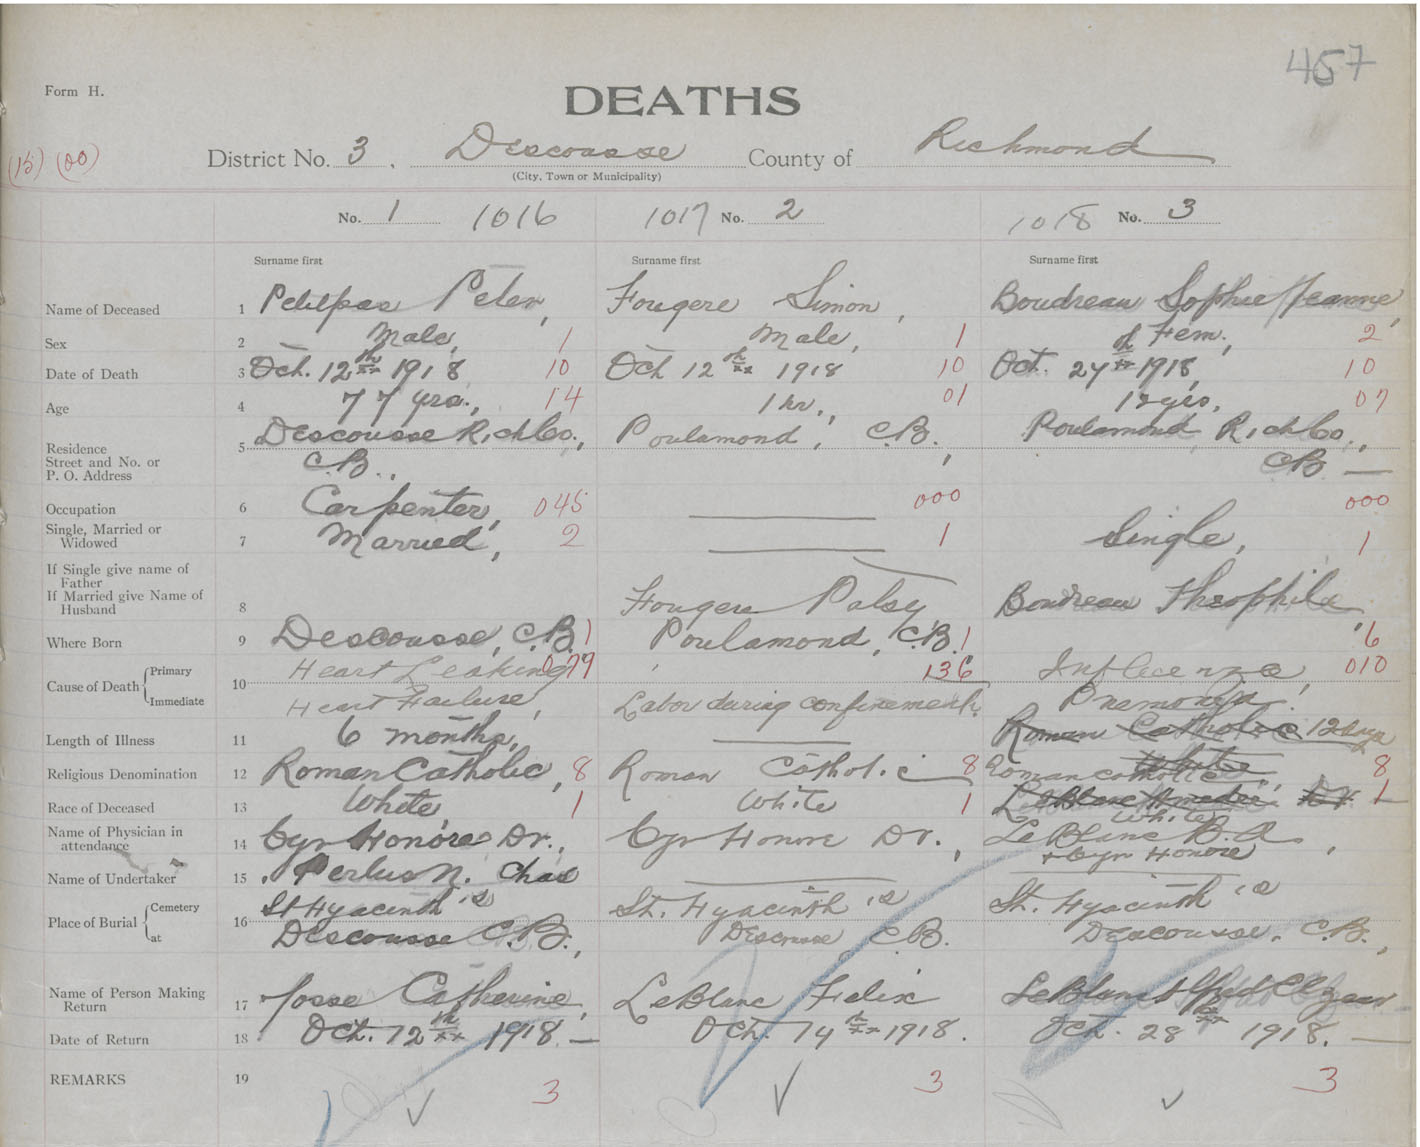 457
Form H.
DEATHS
(15) (00) District No. 3. Descousse County of Richmond
(City, Town or Municipality)
No. 1 1016 1017 No. 2 1018 No. 3
Surname first Surname first Surname first
Name of Deceased 1 Petitpas Peter, Fougere Simon, Boudreau Sophie Jeanne,
Sex 2 Male, 1 Male, 1 Fem. 2
Date of Death 3 Oct. 12th 1918 10 Oct 12th 1918 10 Oct. 24th 1918, 10
Age 4 77 yrs., 14 1 hr., 01 12 yrs. 07
Residence
Street and No. or
P. O. Address
5 Descousse Rich Co., Poulamond, C.B., Poulamond Rich Co.,
C.B., CB —
Occupation 6 Carpenter, 045 000 000
Single, Married or
Widowed
7 Married, 2 1 Single, 1
If Single give name of
Father
If Married give Name of
Husband
8 Fougere Palsy Boudreau Theophile,
Where Born 9 Descousse, C.B. 1 Poulamond, C.B. 1 6
Cause of Death Primary 10 Heart Leaking 079 136 Influenza, 010
Immediate Heart Failure, Labor during confinement. Pnemonia
Length of Illness 11 6 months, Roman Catholic 12 days
Religious Denomination 12 Roman Catholic, 8 Roman Catholic 8 Roman Catholic White, 8
Race of Deceased 13 White, 1 White 1 LeBlanc Amedee, Dr. White 1
Name of Physician in
attendance
14 Cyr Honore Dr., Cyr Honore Dr., LeBlanc B.A,
+ Cyr Honore
Name of Undertaker 15 . N. Chas
Place of Burial Cemetery 16 St Hyacinth's St. Hyacinth's St. Hyacinth's
at Descousse C.B., Descousse CB. Descousse, C.B.,
Name of Person Making
Return
17 Josse Catherine, LeBlanc Felix LeBlanc Alfred
Date of Return 18 Oct. 12th 1918. — Oct. 14th 1918. Oct. 28th 1918. —
REMARKS 19 3 3 3